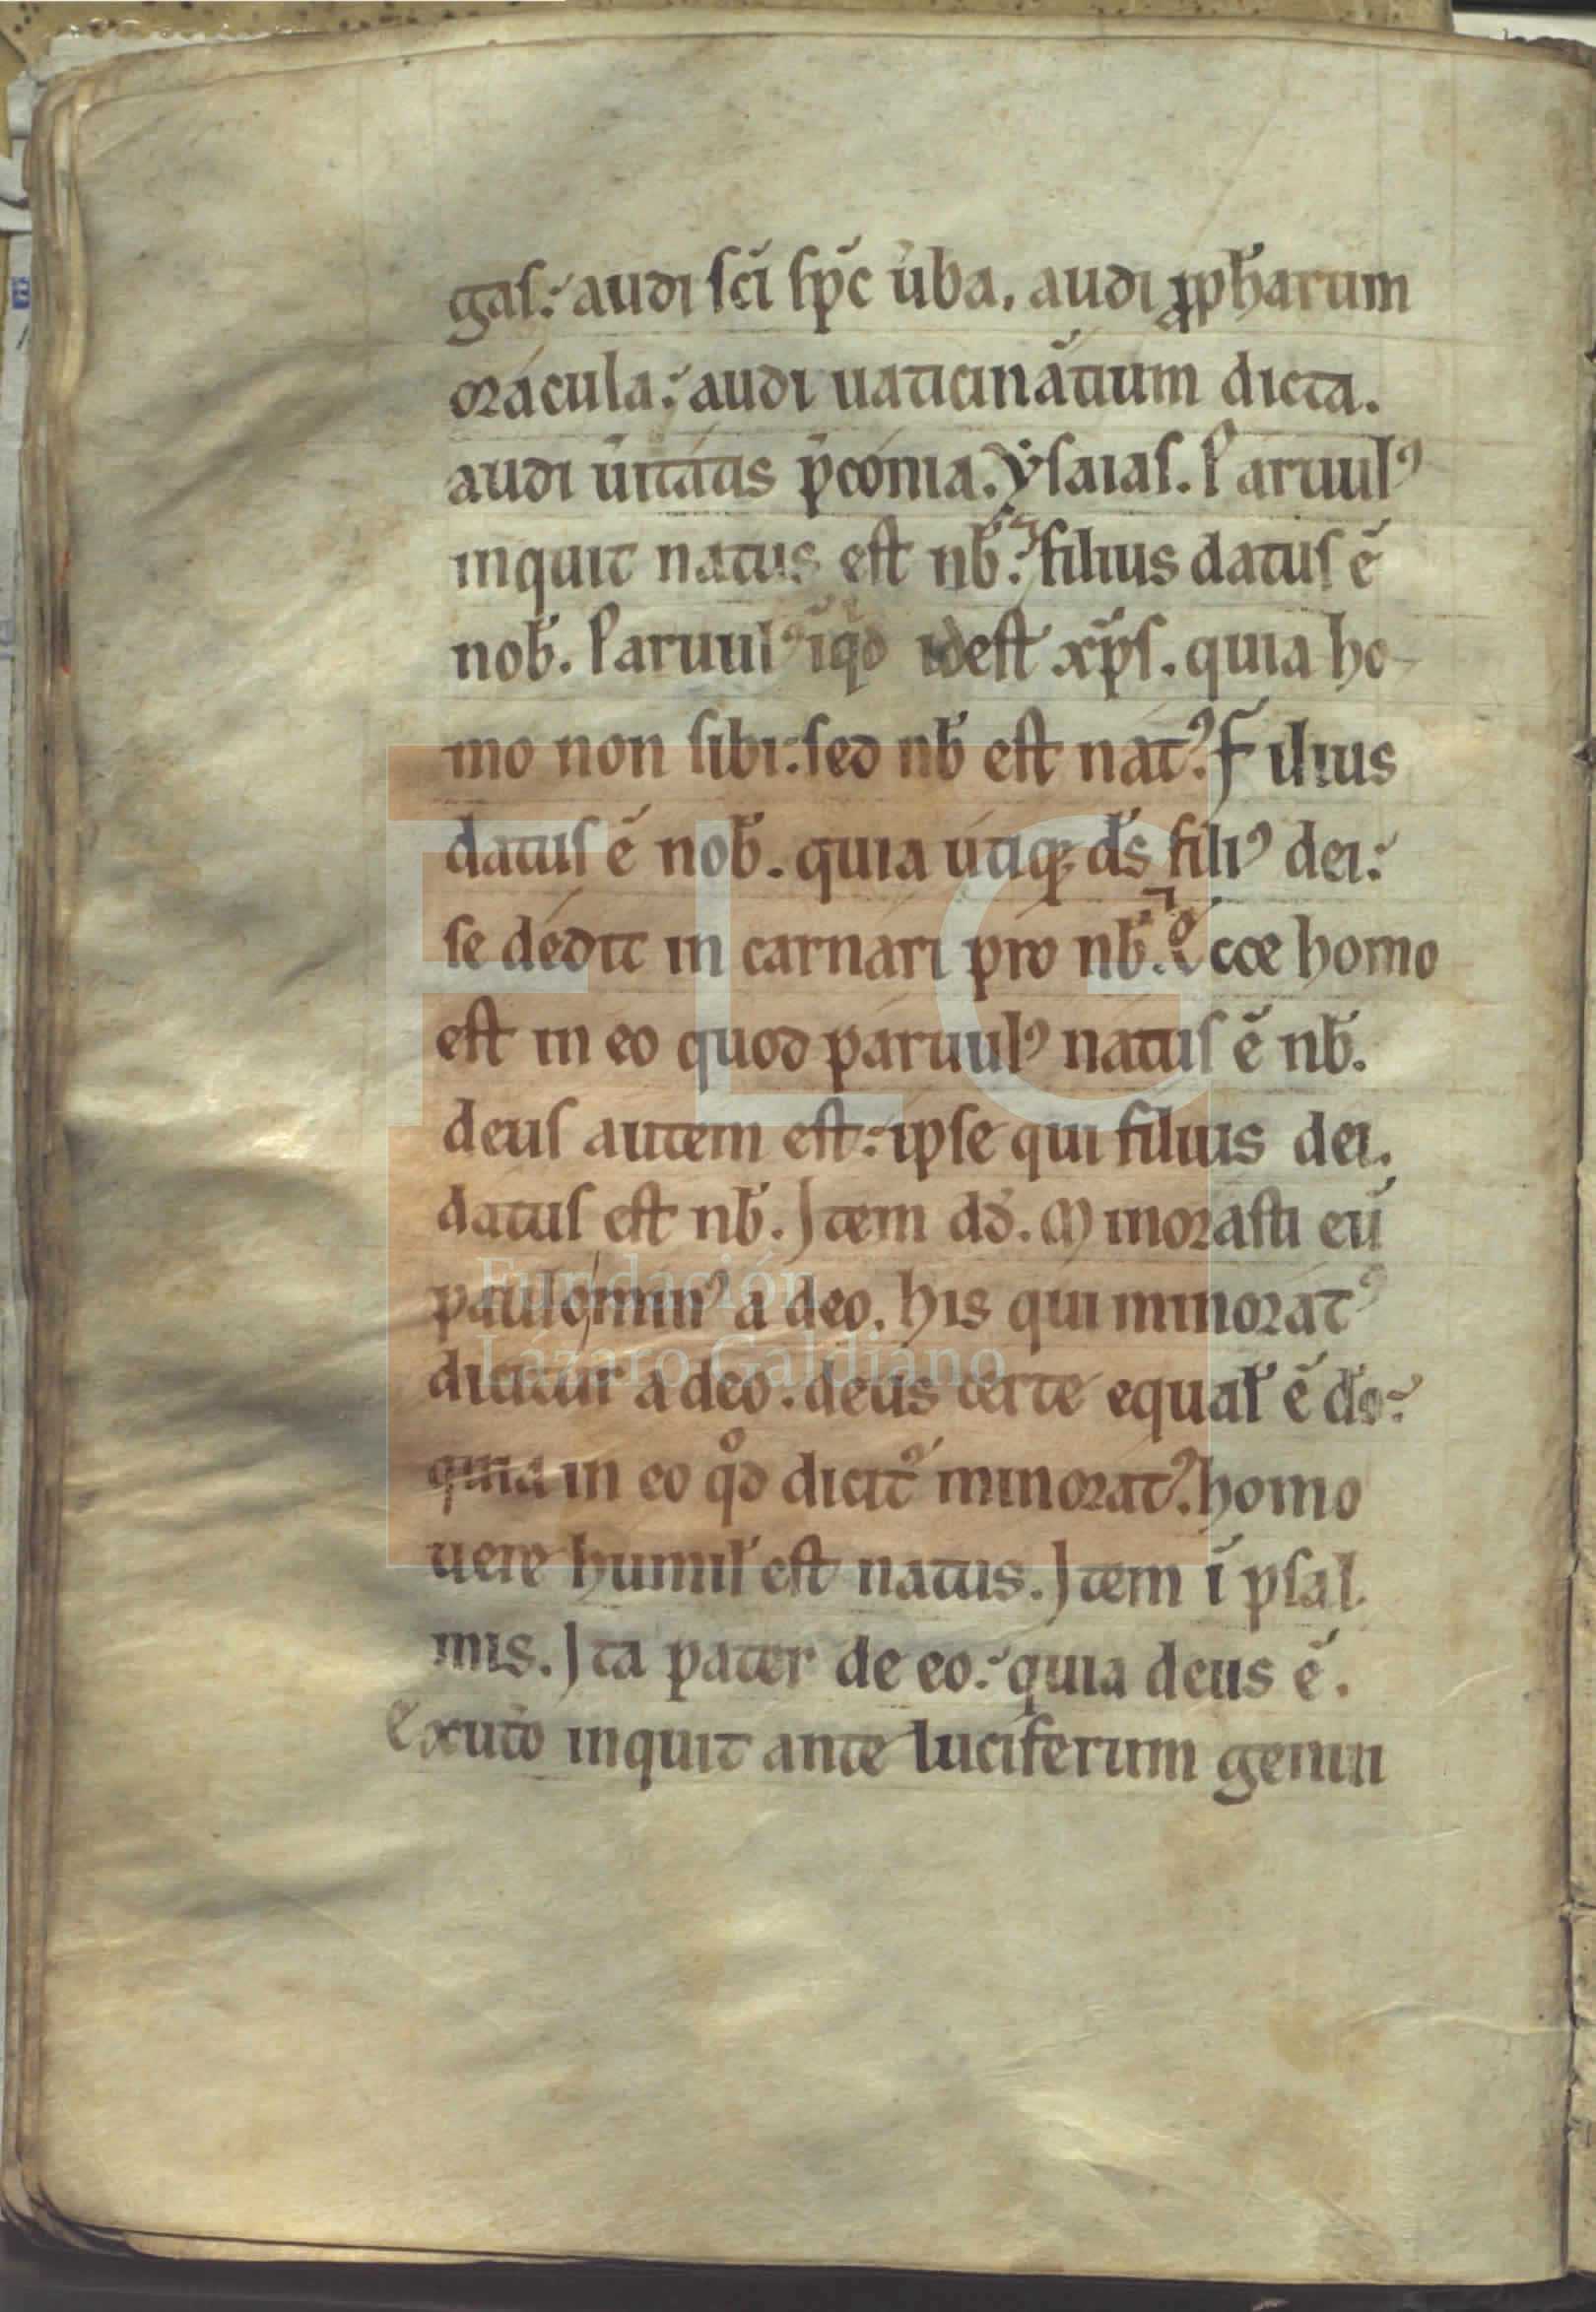 gas: audi sci̅ sp̅c u̅ba. audi ꝓph̅arum
oracula: audi uaticina̅tium dicta.
audi u̅itatis p̅conia. ysaias. Paruulꝰ
inquit natus est nb̅: filius datus e̅
nob̅. Paruulꝰ iq̅d idest xp̅s. quia ho-
mo non sibi: sed nb̅ est natꝰ. Filius
datus e̅ nob̅. quia utiqꝫ ds̅ filiꝰ dei:
se dedit in carnari pro nb̅. Ecce homo
est in eo quod paruulꝰ natus e̅ nb̅.
deus autem est: ipse qui filius dei.
datus est nb̅. Item dd̅. Minorasti eu̅
paulominꝰ a deo. his qui minoratꝰ
dicitur a deo. deus certe equal̅ e̅ do̅:
quia in eo qd̊ dicitᷣ minoratꝰ. homo
uere humil̅ est natus. Item i̅ psal
mis. Ita pater de eo: quia deus e̅.
Exuto inquit ante luciferum genui
FLG
Fundación
Lázaro Galdiano